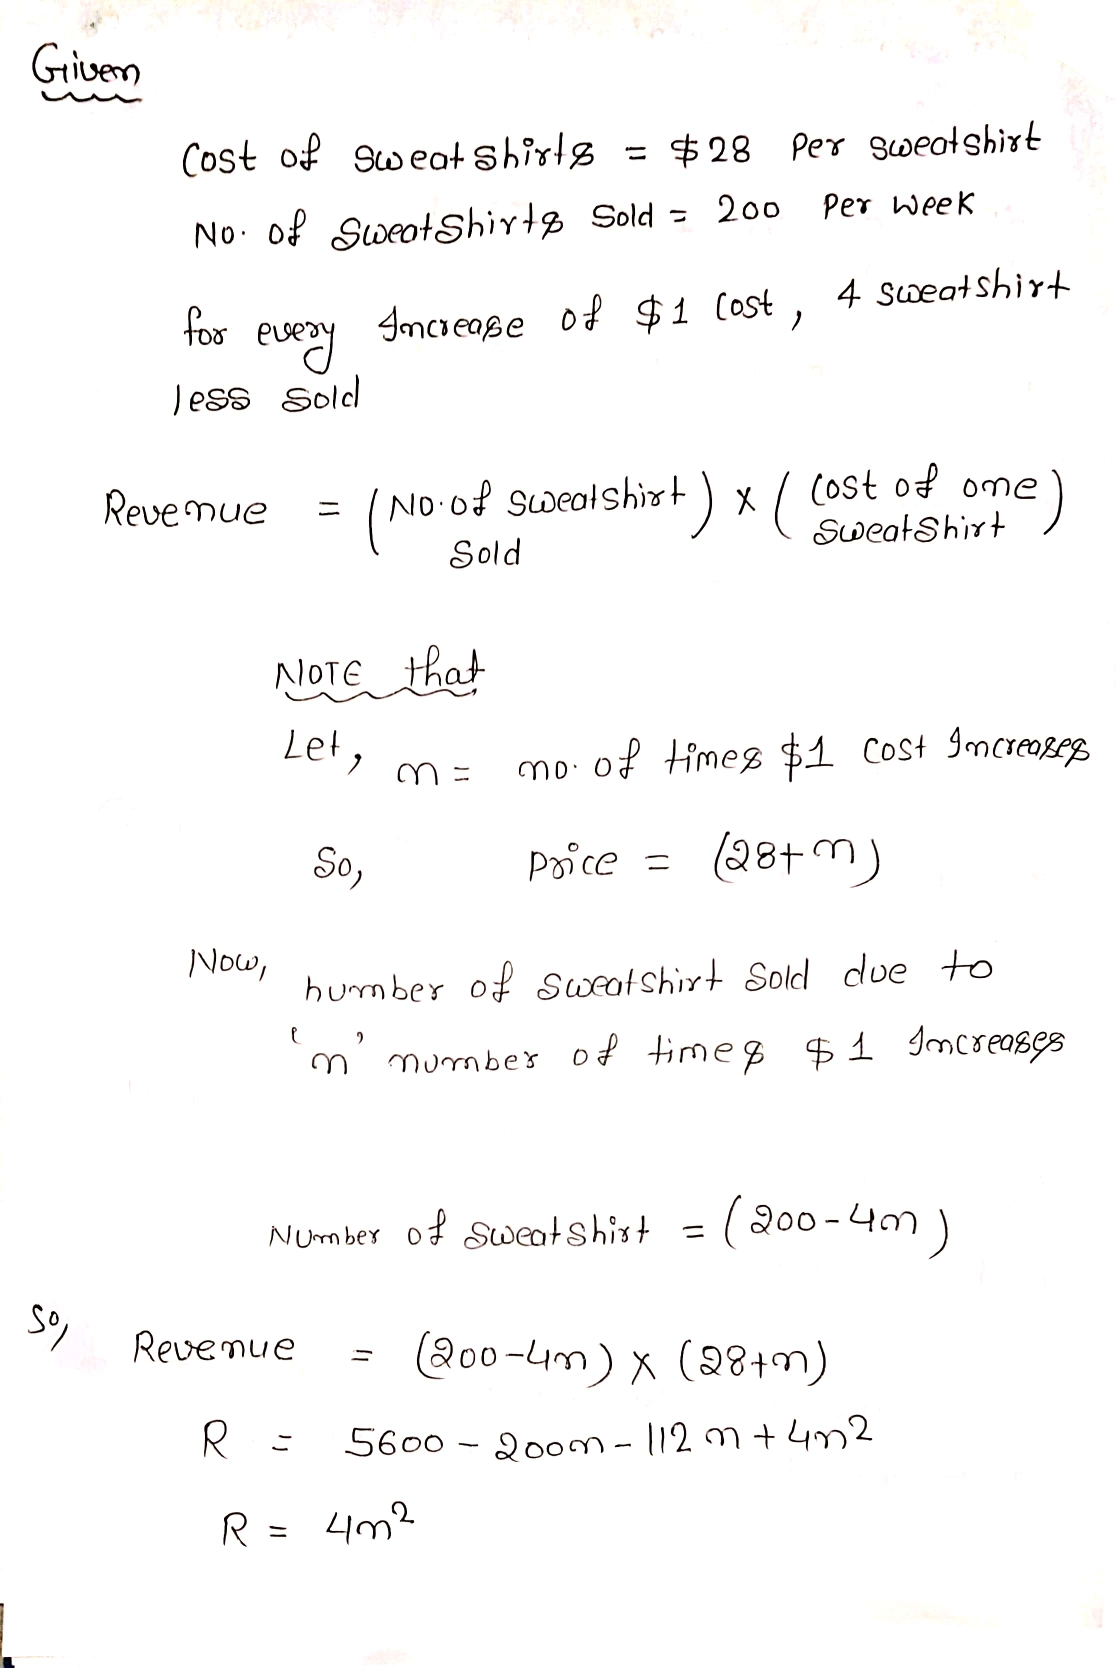 Given
Cost of sweatshirts = $28 Per sweatshirt
No. of Sweatshirts Sold = 200 Per week
for every Increase of $1 Cost, 4 sweatshirt
less sold
Revenue = (No. of sweatshirt Sold) x (Cost of one Sweatshirt)
NOTE that
Let, n = no. of times $1 cost Increases
So, price = (28+n)
Now, number of sweatshirt Sold due to
'n' number of times $1 Increases
Number of sweatshirt = (200-4n)
So, Revenue = (200-4n) x (28+n)
R = 5600 - 200n - 112n + 4n²
R = 4n²